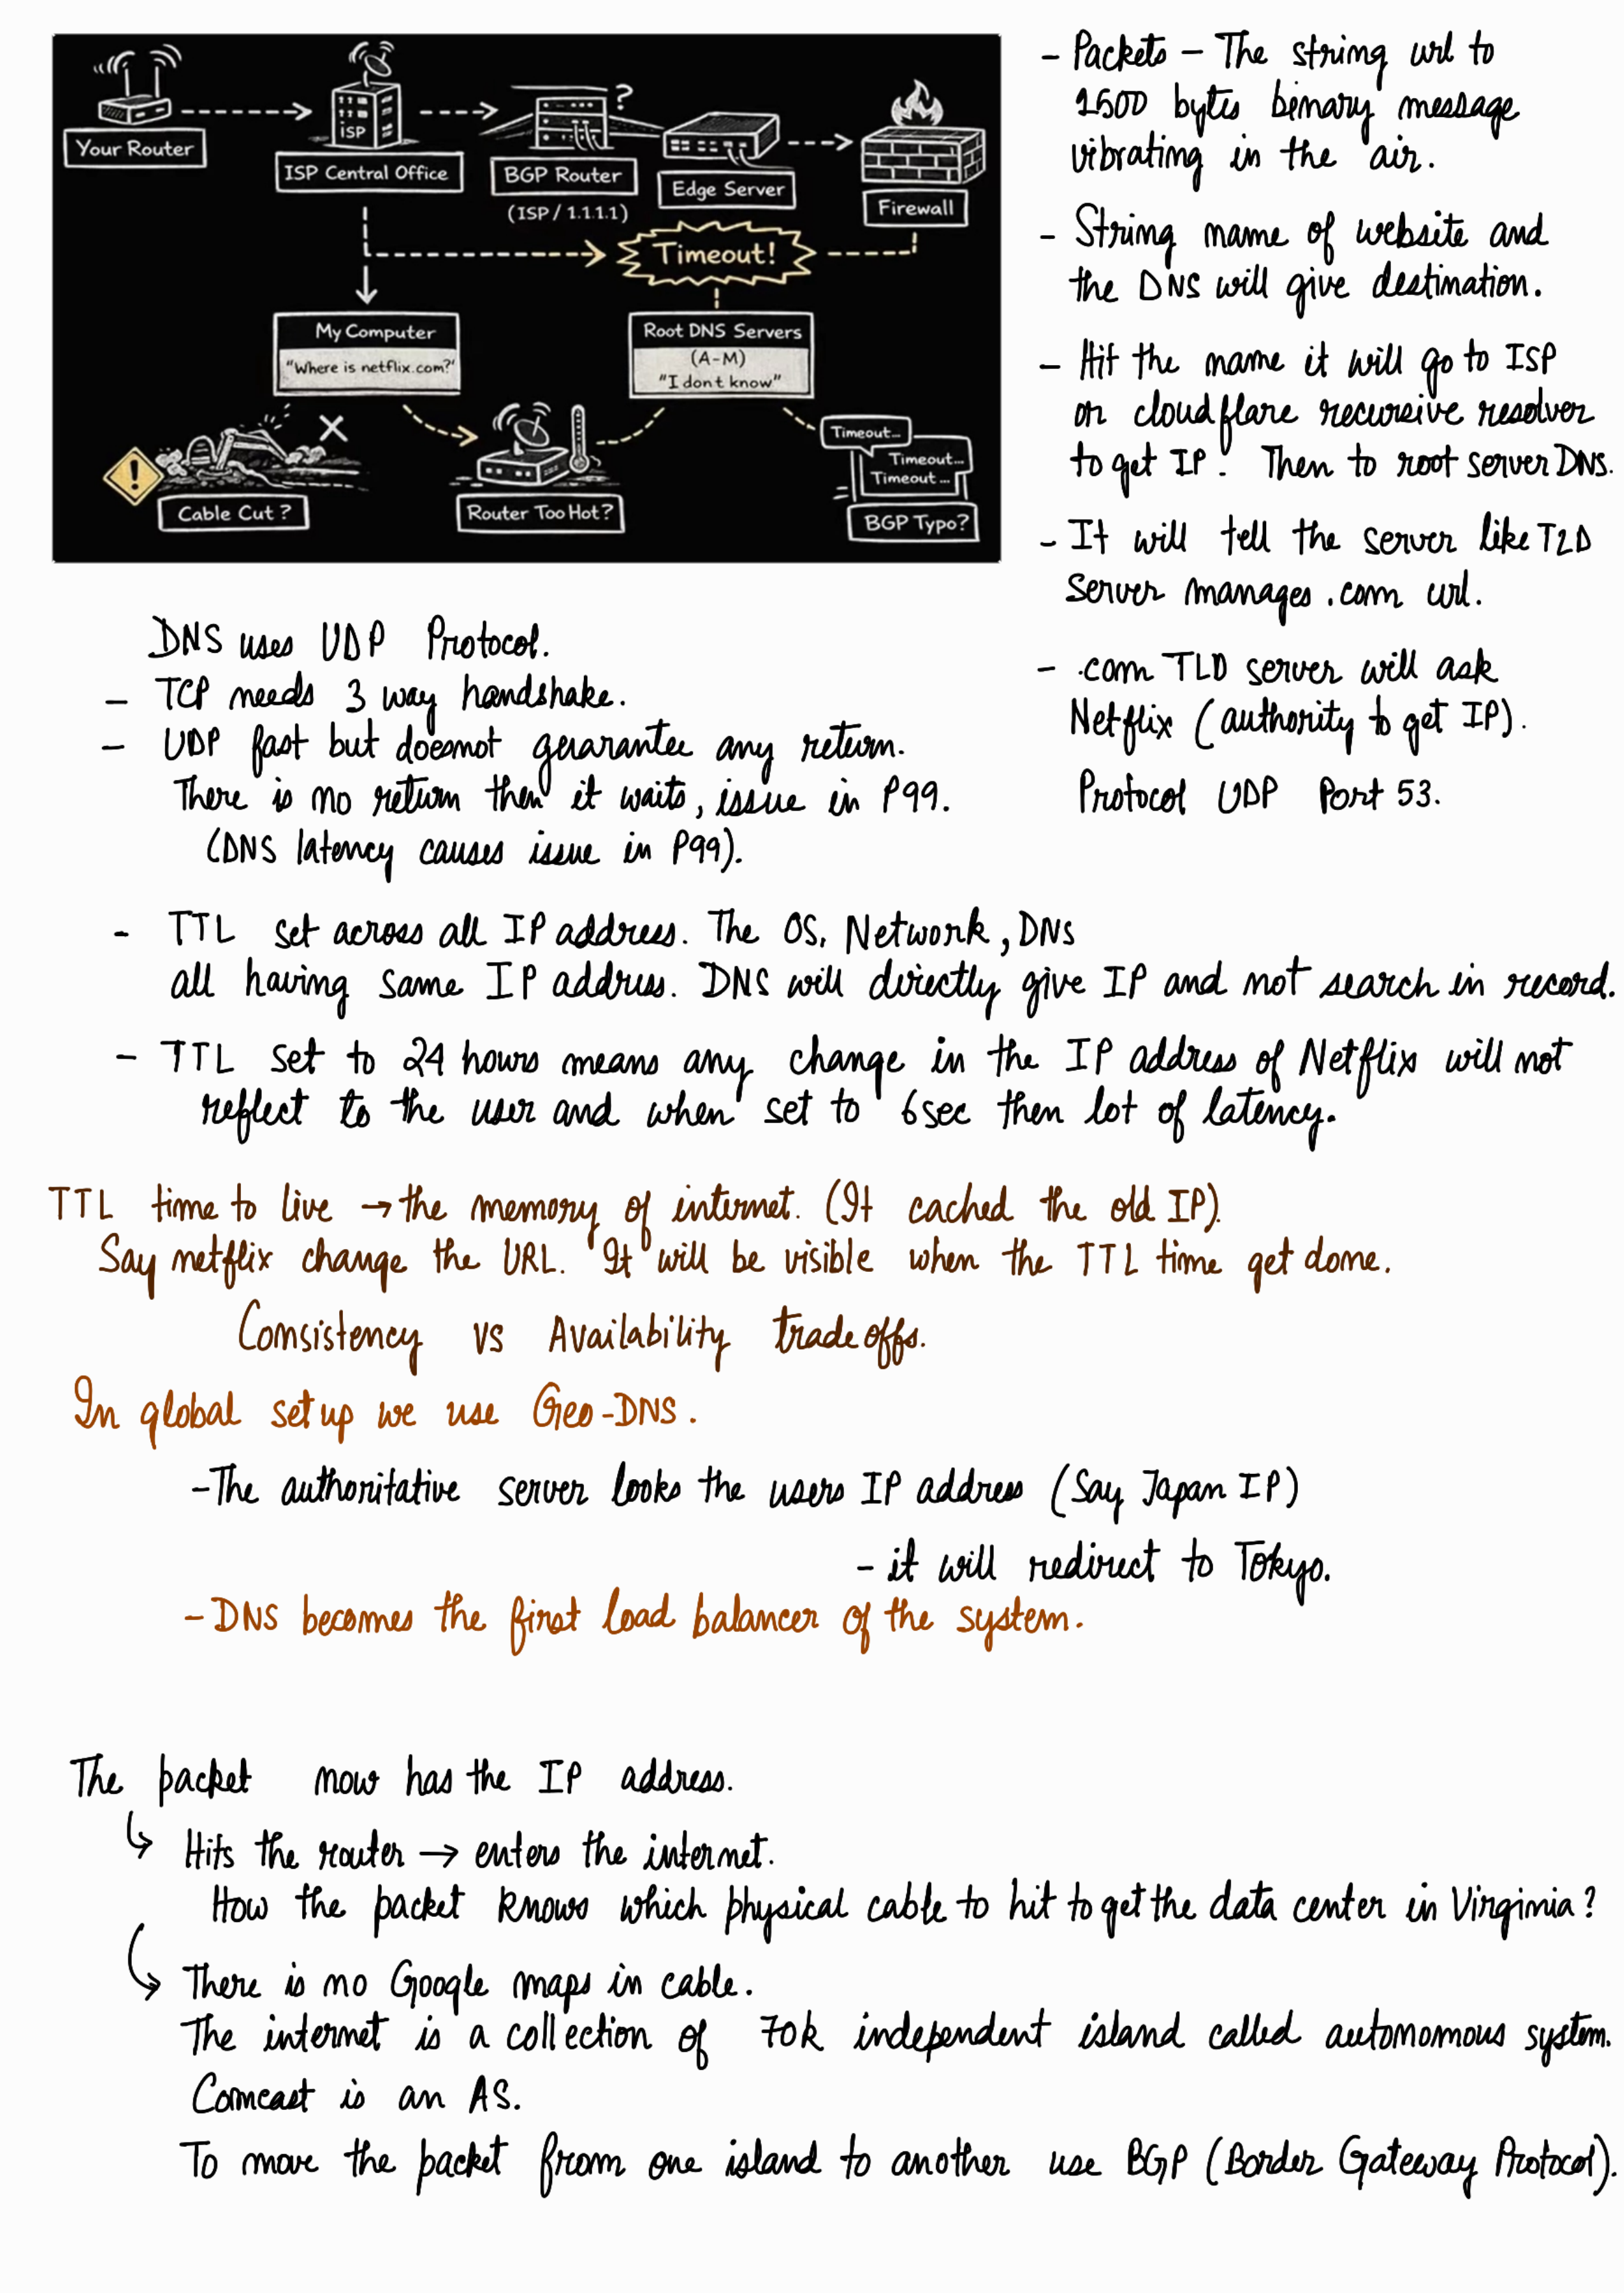 Your Router
iSP
ISP Central Office
?
BGP Router
(ISP / 1.1.1.1)
Edge Server
Firewall
Timeout!
My Computer
"Where is netflix.com?"
Root DNS Servers
(A-M)
"I dont know"
!
Cable Cut ?
Router Too Hot?
Timeout...
Timeout...
Timeout...
BGP Typo?
- Packets - The string url to
1500 bytes binary message
vibrating in the air.
- String name of website and
the DNS will give destination.
- Hit the name it will go to ISP
or cloudflare recursive resolver
to get IP. Then to root server DNS.
- It will tell the server like TLD
Server manages .com url.
- .com TLD server will ask
Netflix (authority to get IP).
Protocol UDP Port 53.
DNS uses UDP Protocol.
- TCP needs 3 way handshake.
- UDP fast but doesnot guarantee any return.
There is no return then it waits, issue in P99.
(DNS latency causes issue in P99).
- TTL set across all IP address. The OS, Network, DNS
all having same IP address. DNS will directly give IP and not search in record.
- TTL set to 24 hours means any change in the IP address of Netflix will not
reflect to the user and when set to 6sec then lot of latency.
TTL time to live → the memory of internet. (It cached the old IP).
Say netflix change the URL. It will be visible when the TTL time get done.
Consistency vs Availability trade offs.
In global set up we use Geo-DNS.
- The authoritative server looks the users IP address (Say Japan IP)
- it will redirect to Tokyo.
- DNS becomes the first load balancer of the system.
The packet now has the IP address.
↳ Hits the router → enters the internet.
How the packet knows which physical cable to hit to get the data center in Virginia?
↳ There is no Google maps in cable.
The internet is a collection of 70k independent island called autonomous system.
Comcast is an AS.
To move the packet from one island to another use BGP (Border Gateway Protocol).